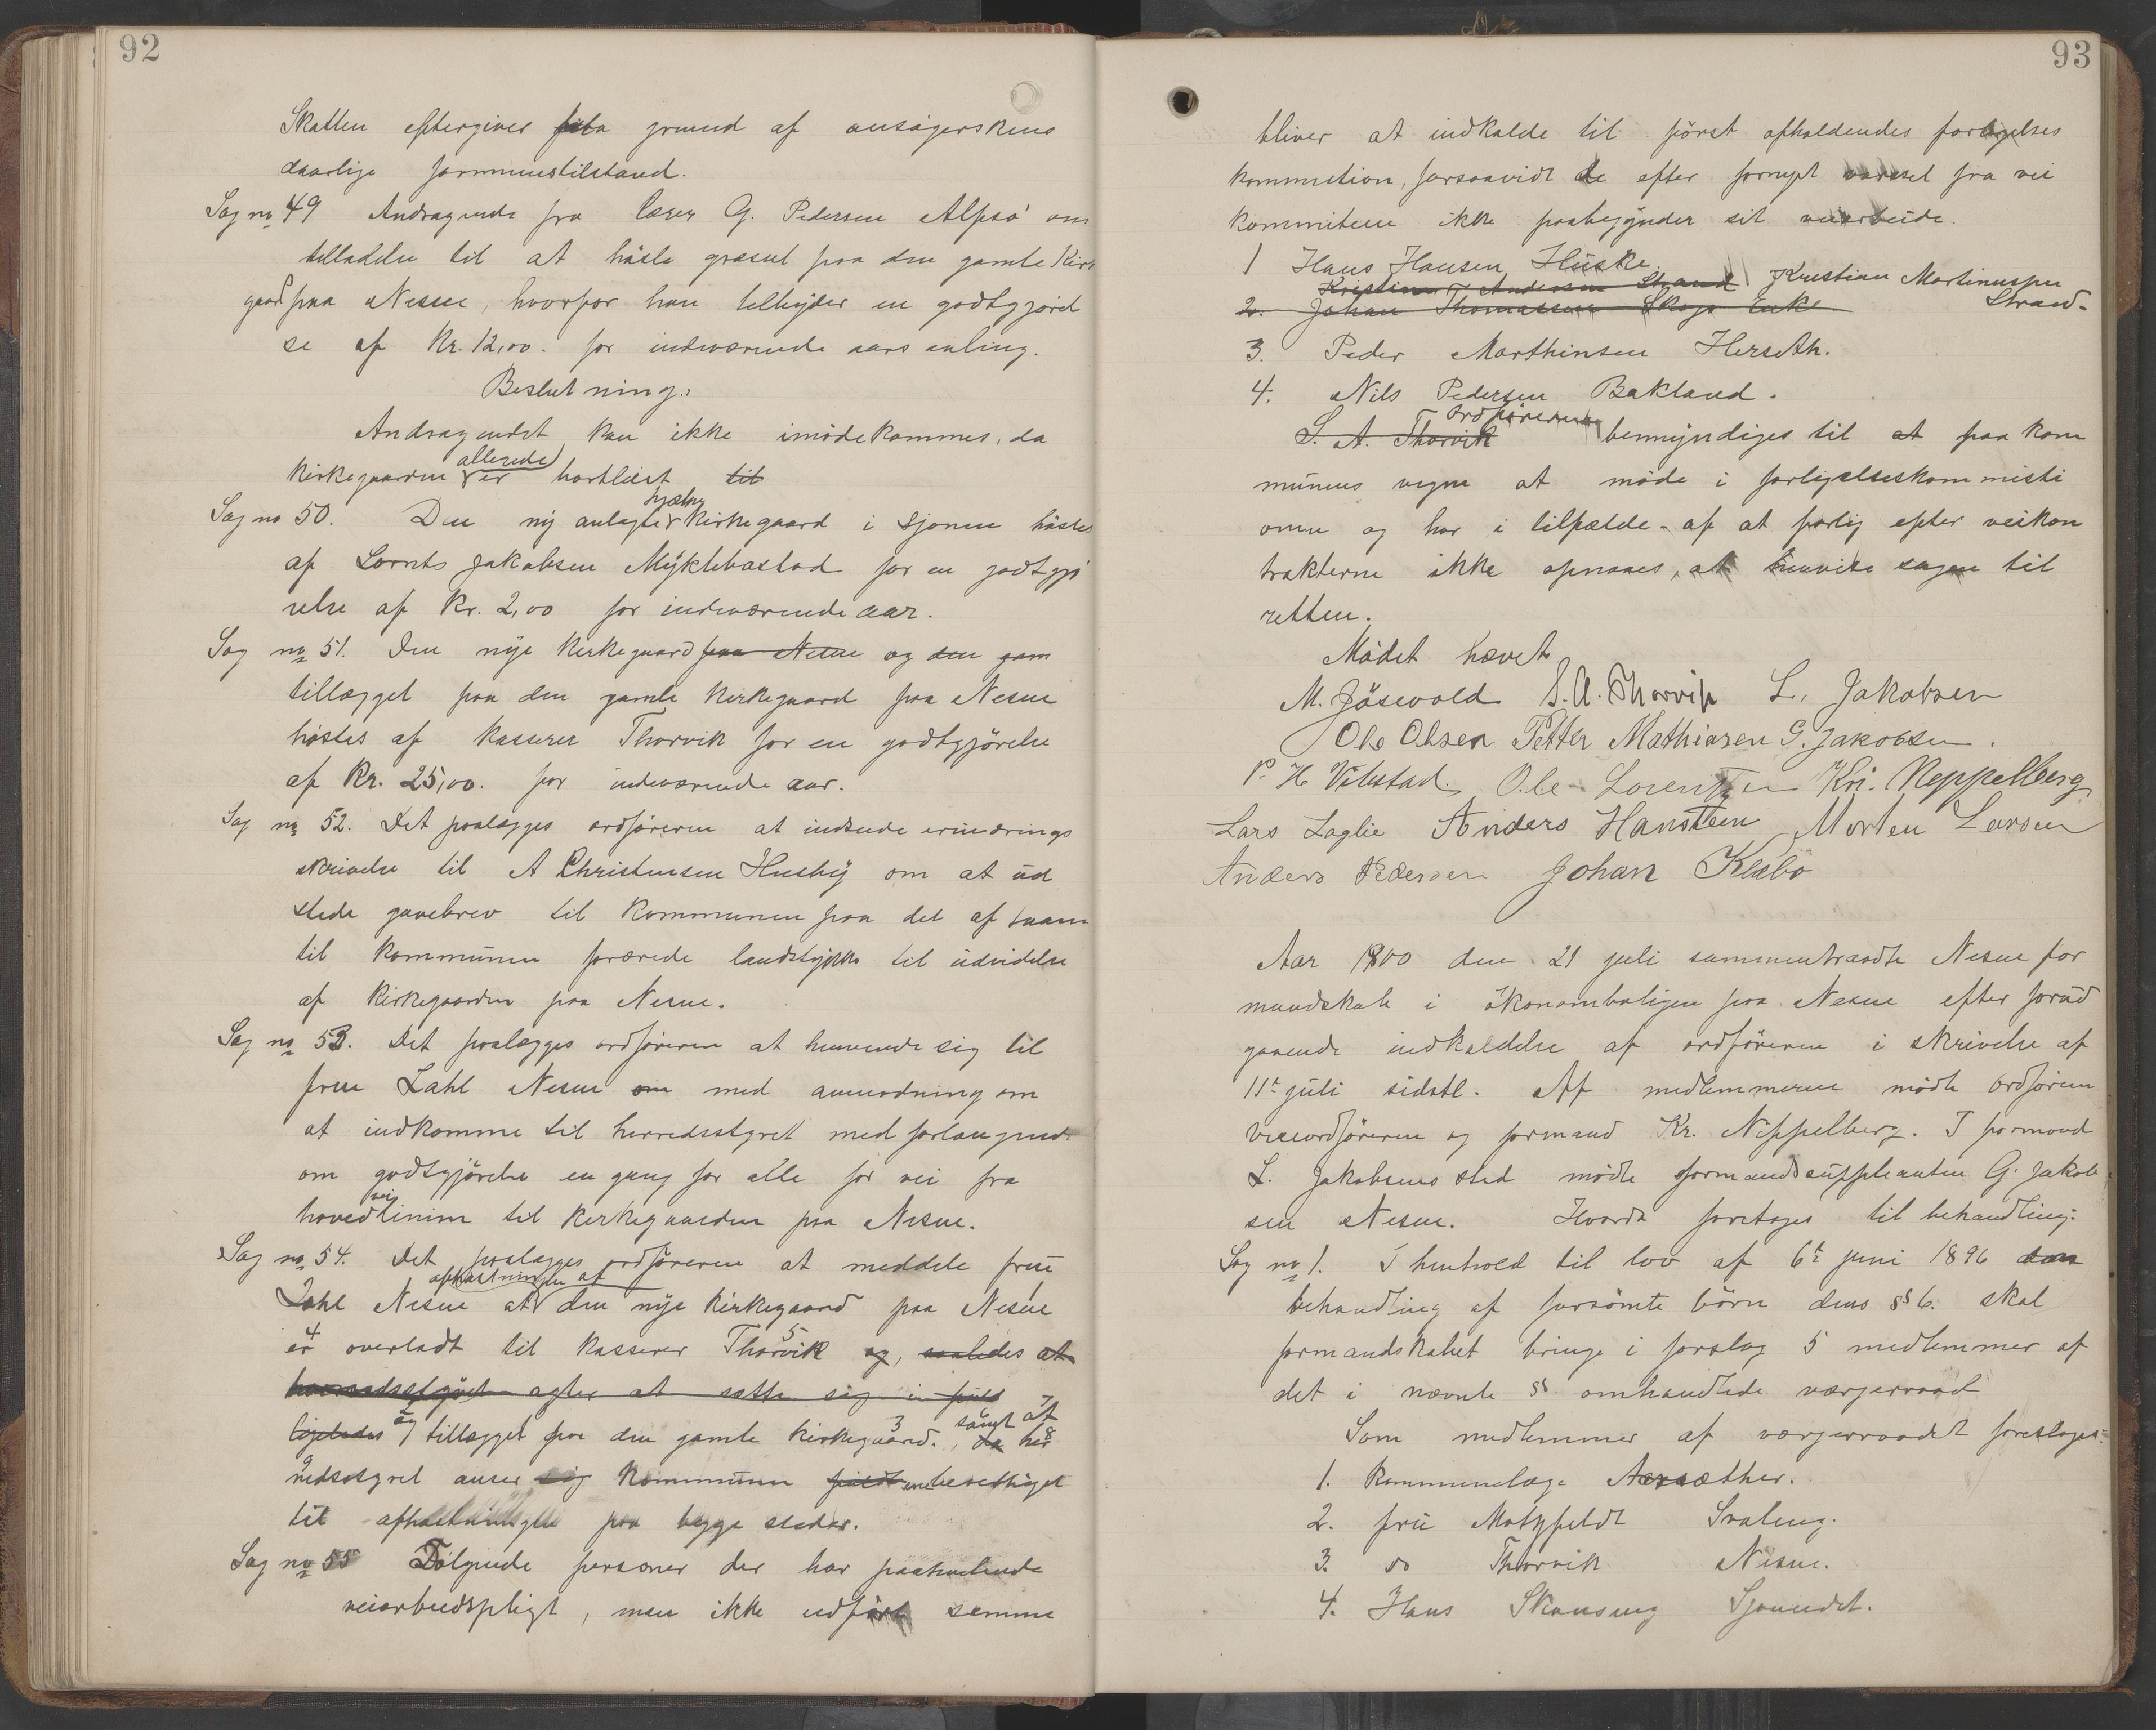 92
Skatten eftergives grund af ansögerskens
daarlige formuestilstand.
Sag no 49 Andragende fra læser G. Pedersen Alpsö om
tilladelse til at höste græsset paa den gamle Kirke
gaard paa Nesne, hvorfor han tilbyder en godtgjörel
se af Kr. 12,00. for indeværende aars avling.
Beslutning:
Andragendet kan ikke imödekommes, da
kirkegaarden allerede er bortlåst til
Sag no 50. Den ny anlagte hjælpe kirkegaard i Sjonen höstes
af Lornts Jakobsen Myklebostad for en godtgjö
relse af Kr. 2,00 for indeværende aar.
Sag no 51. Den nye kirkegaard paa Nesne og den gam
tillægget paa den gamle kirkegaard paa Nesne
höstes af kaserer Thorvik for en godtgjörelse
af Kr. 25,00. for indeværende aar.
Sag no 52. Det paalægges ordföreren at indsende erindrings
skrivelse til A Christensen Husby om at ud
stede gavebrev til kommunen paa det af ham
til kommunen forærede landstykke til udvidelse
af kirkegaarden paa Nesne.
Sag no 53. Det paalægges ordföreren at henvende sig til
frue Zahl Nesne om med anmodning om
at indkomme til herredsstyret med forlangende
om godtgjörelse en gang for alle for vei fra
hovedveilinien til kirkegaarden paa Nesne.
Sag no 54. Det paalægges ordföreren at meddele frue
Zahl Nesne at afhøstningen af den nye kirkegaard paa Nesne
4 er overladt til kasserer Thorvik 5 og, saaledes at
herredsstyret agter at sætte sig i fuld
ligeledes 2 og tillægget paa den gamle kirkegaard. 3, samt 6 at 7 da her 8
9 redsstyret anser sig kommunen fuldt eneberettiget
til afhøstningen paa begge steder.
Sag no 55 Fölgende personer der har paahvilende
veiarbeidspligt, men ikke udfört samme
93
bliver at indkalde til först afholdendes forligelses
kommision, forsaavidt de efter fornyet varsel fra vei
kommiteen ikke paabegynder sit veiarbeide.
1 Hans Hansen Huske.
Kristian Andersen Strand Kristian Martinussen
2. Johan Thomassen Skogs Enke Strand-
3. Peder Marthinsen Herseth.
4. Nils Pedersen Bakland.
S. A. Thorvik Ordföreren bemyndiges til at paa kom
munens vegne at möde i forligelseskommisti
onen og har i tilfælde af at forlig efter veikon
trakterne ikke opnaaes, at henvise sagen til
retten.
Mödet hævet
M. Jösevold S. A. Thorvik L. Jakobsen
Ole Olsen Petter Mathiasen G. Jakobsen.
P. H Vikstad. Ole Lorentzen Kri. Neppelberg
Lars Laglie Anders Hansteen Morten Larsen
Anders Pedersen Johan Klæbo
Aar 1900 den 21 juli sammentraadte Nesne for
mandskab i ökonomboligen paa Nesne efter forud
gaaende indkaldelse af ordföreren i skrivelse af
11te juli sidstl. Af medlemmerne mödte ordföreren
viceordföreren og formand Kr. Neppelberg. I formand
L. Jakobsens sted mödte formandssuppleanten G. Jakob
sen Nesne. Hvorda foretages til behandling:
Sag no 1. I henhold til lov af 6te juni 1896 om
behandling af forsömte börn dens §§ 6. skal
formandskabet bringe i forslag 5 medlemmer af
det i nævnte §§ omhandlede værgeraad
Som medlemmer af værgeraadet foreslages:
1. Kommunelæge Aarsæther.
2. fru Motzfeldt Svaleng.
3. do Thorvik Nesne.
4. Hans Skonseng Sjonudet.